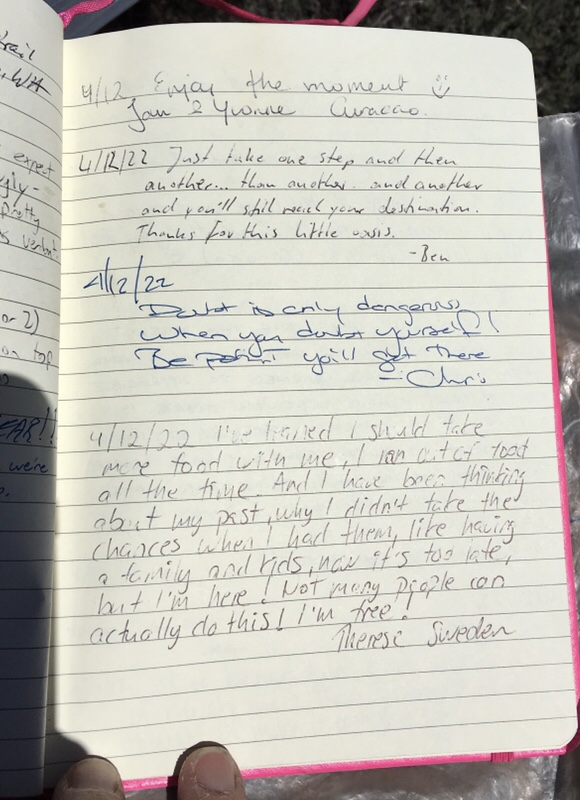 trail
WA
expect
gly-
pretty
or 2)
on top
EAR!!
we're
4/12 Enjoy the moment
Jan & Yvonne Curacao.
4/12/22 Just take one step and then
another... than another and another
and you'll still reach your destination.
Thanks for this little oasis.
-Ben
4/12/22
Doubt is only dangerous
when you doubt yourself!
Be you'll get there
- Chris
4/12/22 I've learned I should take
more food with me, I ran out of food
all the time. And I have been thinking
about my past, why I didn't take the
chances when I had them, like having
a family and kids, now it's too late,
but I'm here! Not many people can
actually do this! I'm free!
Therese Sweden